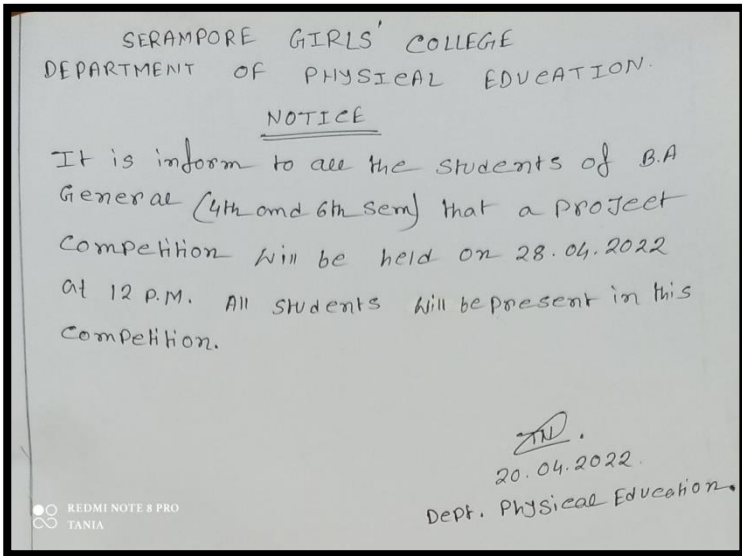 SERAMPORE GIRLS' COLLEGE
DEPARTMENT OF PHYSICAL EDUCATION.
NOTICE
It is inform to all the students of B.A
General (4th and 6th Sem) that a project
Competition will be held on 28.04.2022
at 12 P.M. All students will be present in this
Competition.
20.04.2022.
Dept. Physical Education.
REDMI NOTE 8 PRO
TANIA